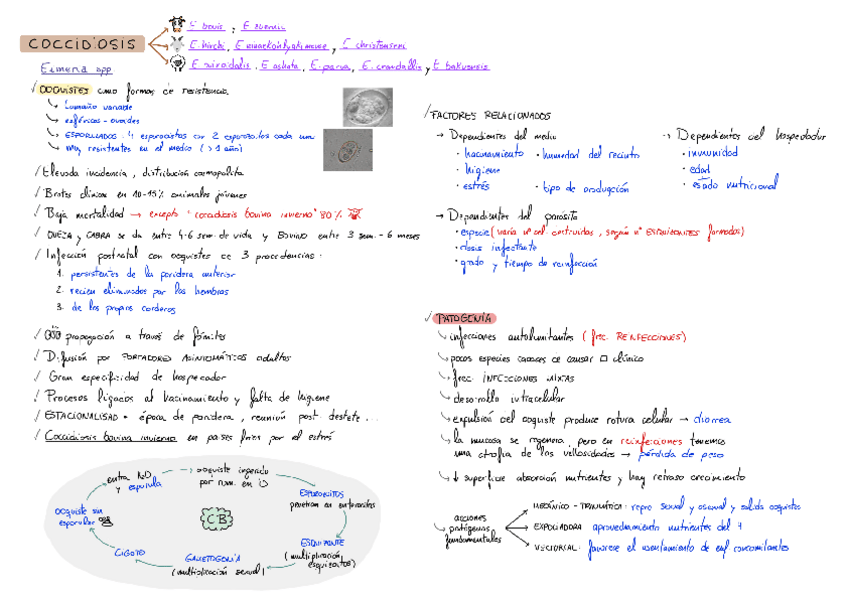 COCCIDIOSIS
E. bovis, E. zuernii
E. hirchi, E. ninakohlyakimovae, E. christenseni
E. ovinoidalis, E. ashata, E. parva, E. crandallis y E. bakuensis
Eimeria spp
OOQUISTES como formas de resistencia
tamaño variable
esféricas-ovoides
ESPORULADOS: 4 esporocistos con 2 esporozoitos cada uno
muy resistentes en el medio (>1 año)
Elevada incidencia, distribución cosmopolita
Brotes clínicos en 10-15% animales jóvenes
Baja mortalidad → excepto "coccidiosis bovina invierno" 80%
OVEJA y CABRA se da entre 4-6 sem. de vida y BOVINO entre 3 sem. - 6 meses
Infección postnatal con ooquistes de 3 procedencias:
1. persistentes de la paridera anterior
2. recien eliminados por las hembras
3. de los propios corderos
propagación a través de fómites
Difusión por PORTADORES ASINTOMÁTICOS adultos
Gran especificidad de hospedador
Procesos ligados al hacinamiento y falta de higiene
ESTACIONALIDAD época de paridera, reunión post destete...
Coccidiosis bovina invierno en países fríos por el estrés
entra H2O y esporula
ooquiste ingerido por rum. en ID
ESPOROZOITOS penetran en enterocitos
ESQUIZONTE (multiplicación, esquizontes)
GAMETOGONIA (multiplicación sexual)
CIGOTO
ooquiste sin esporular
CB
FACTORES RELACIONADOS
→ Dependientes del medio
· hacinamiento · humedad del recinto
· higiene
· estrés · tipo de producción
→ Dependientes del hospedador
· inmunidad
· edad
· estado nutricional
→ Dependientes del parásito
· especie (varía nº cel. destruidas, según nº ESQUIZONTES formados)
· dosis infectante
· grado y tiempo de reinfección
PATOGENIA
infecciones autolimitantes (frec. REINFECCIONES)
pocas especies capaces de causar □ clínico
frec. INFECCIONES MIXTAS
desarrollo intracelular
expulsión del ooquiste produce rotura celular → diarrea
la mucosa se regenera, pero en reinfecciones tenemos
una atrofia de las vellosidades → pérdida de peso
↓ superficie absorción nutrientes y hay retraso crecimiento
acciones patógenas fundamentales
MECÁNICO-TRAUMÁTICA: repro. sexual y asexual y salida ooquistes
EXPOLIADORA aprovechamiento nutrientes del H
VECTORIAL: favorece el asentamiento de enf. concomitantes